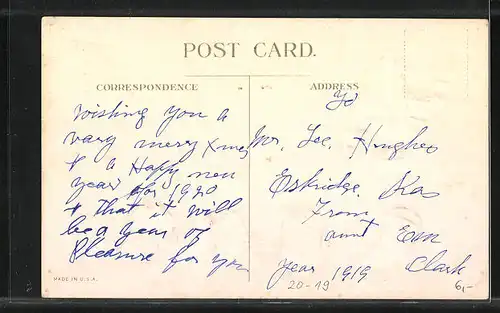 POST CARD.
CORRESPONDENCE
ADDRESS
Wishing you a
vary mery Xmas
+ a Happy new
year for 1920
+ that it will
be a year of
Pleasure for you
To
Mr. Lee. Hughes
Eskridge. Kas
From
aunt Em
Clark
year 1919
20-19
6,-
MADE IN U.S.A.